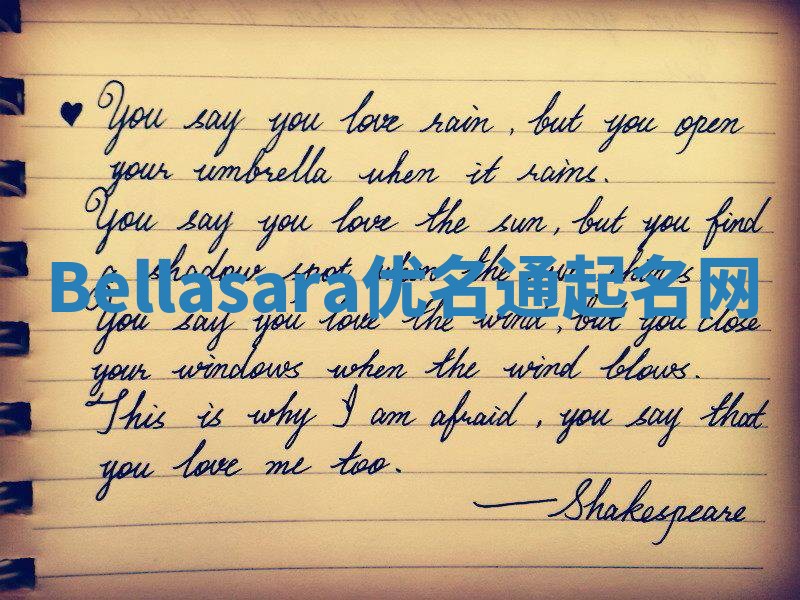 ♥ You say you love rain, but you open
your umbrella when it rains.
You say you love the sun, but you find
a shadow spot when the sun shines
Bellasara优名通起名网
You say you love the wind, but you close
your windows when the wind blows.
This is why I am afraid, you say that
you love me too.
—Shakespeare